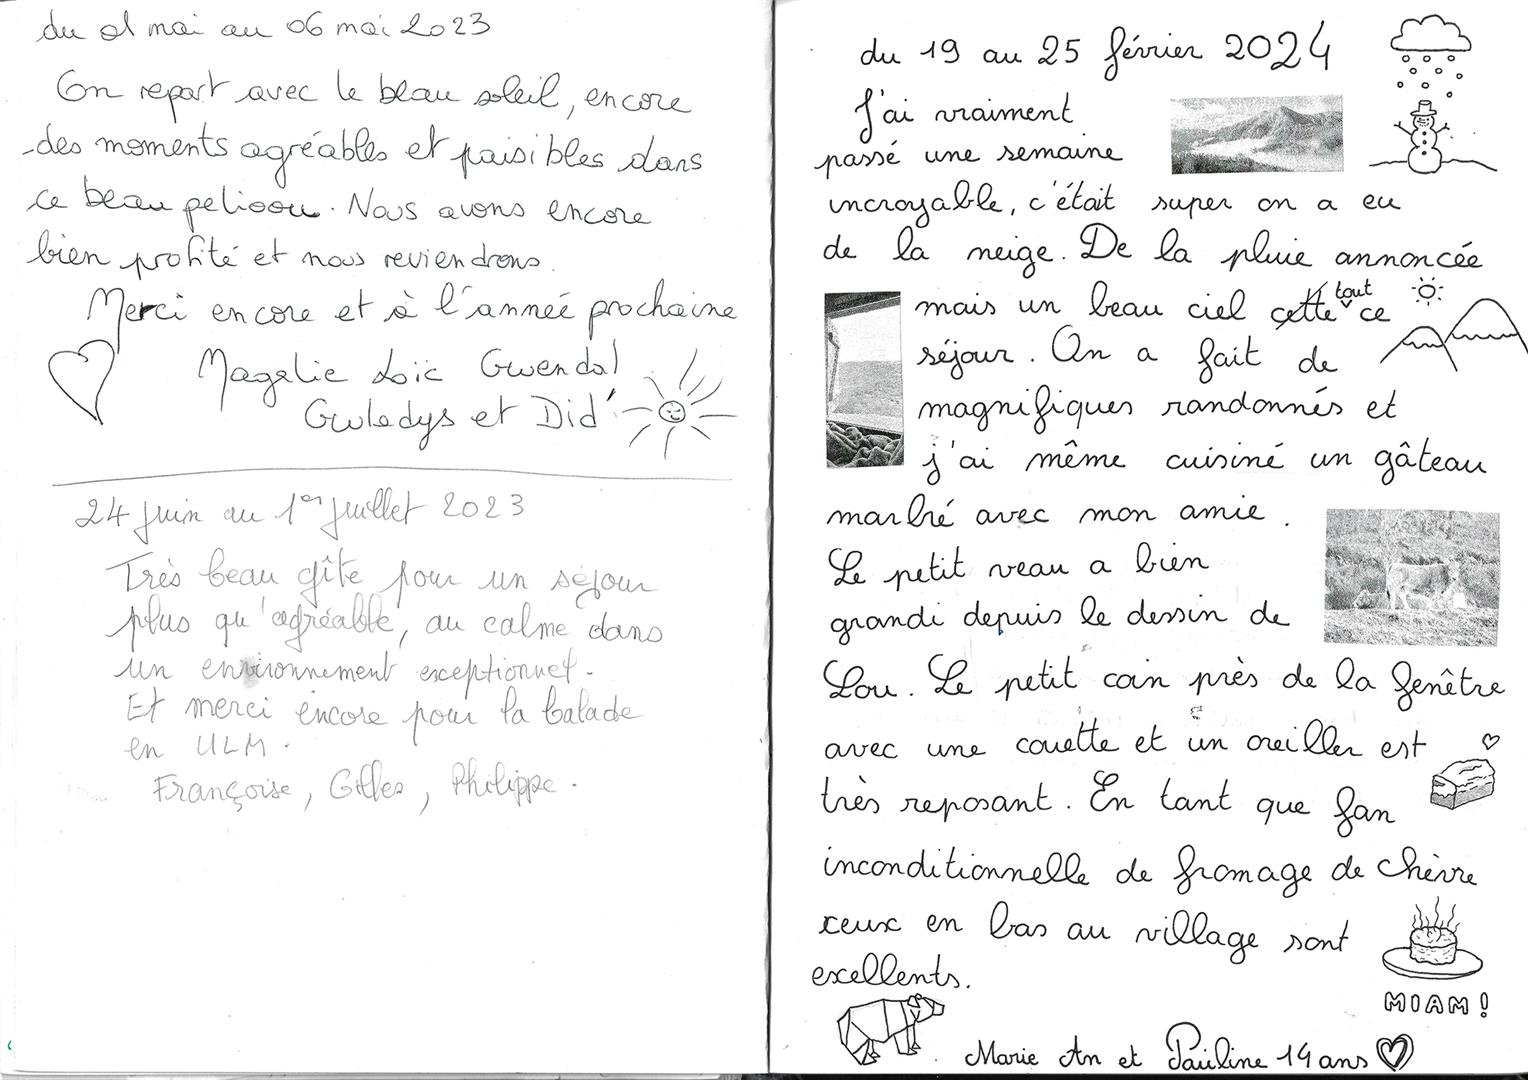 du 01 mai au 06 mai 2023
On repart avec le beau soleil, encore
des moments agréables et paisibles dans
ce beau pelioou. Nous avons encore
bien profité et nous reviendrons.
Merci encore et à l'année prochaine
Magalie Loïc Gwendal
Gwledys et Did'
24 juin au 1er juillet 2023
Très beau gîte pour un séjour
plus qu'agréable, au calme dans
un environnement exceptionnel.
Et merci encore pour la balade
en ULM.
Françoise, Gilles, Philippe.
du 19 au 25 février 2024
J'ai vraiment
passé une semaine
incroyable, c'était super on a eu
de la neige. De la pluie annoncée
mais un beau ciel cette tout ce
séjour. On a fait de
magnifiques randonnés et
j'ai même cuisiné un gâteau
marbré avec mon amie.
Le petit veau a bien
grandi depuis le dessin de
Lou. Le petit coin près de la fenêtre
avec une couette et un oreiller est
très reposant. En tant que fan
inconditionnelle de fromage de chèvre
ceux en bas au village sont
excellents.
MIAM !
Marie An et Pauline 14 ans